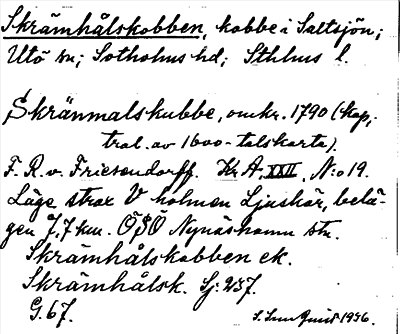 Skrämhålskobben, kobbe i Saltsjön;
Utö sn; Sotholms hd; Sthlms l.
Skränmalskubbe, omkr. 1790 (kop.
tral. av 1600-talskarta).
F. R. v. Friesendorff. Kr. A. XXII, N:o 19.
Läge strax V holmen Ljusskär, belä-
gen 7,7 km. ÖSÖ Nynäshamn stn.
Skrämhålskobben ek.
Skrämhålsk. Sj: 237.
G. 67.
1936.